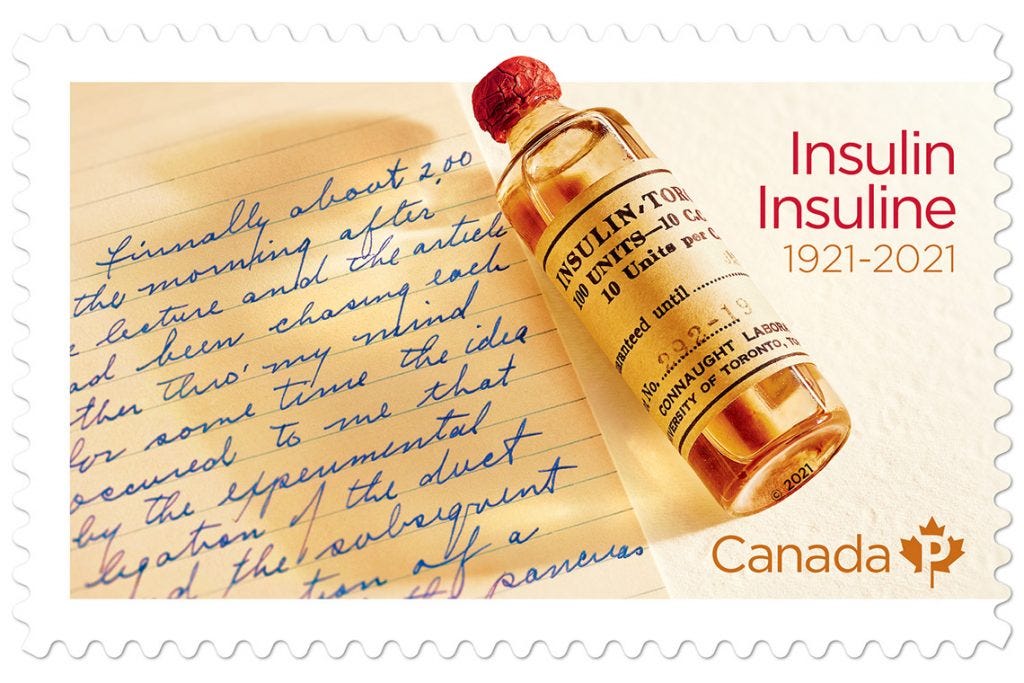 finnally about 2,00
the morning after
lecture and the article
ad been chasing each
ther thro' my mind
for some time the idea
occured to me that
by the experimental
ligation of the duct
d the subsequent
tion of a
the pancreas
INSULIN, TOR
100 UNITS—10 C.c
10 Units per C
uaranteed until
No. 292-19
CONNAUGHT LABORA
VERSITY OF TORONTO, TO
© 2021
Insulin
Insuline
1921-2021
Canada P